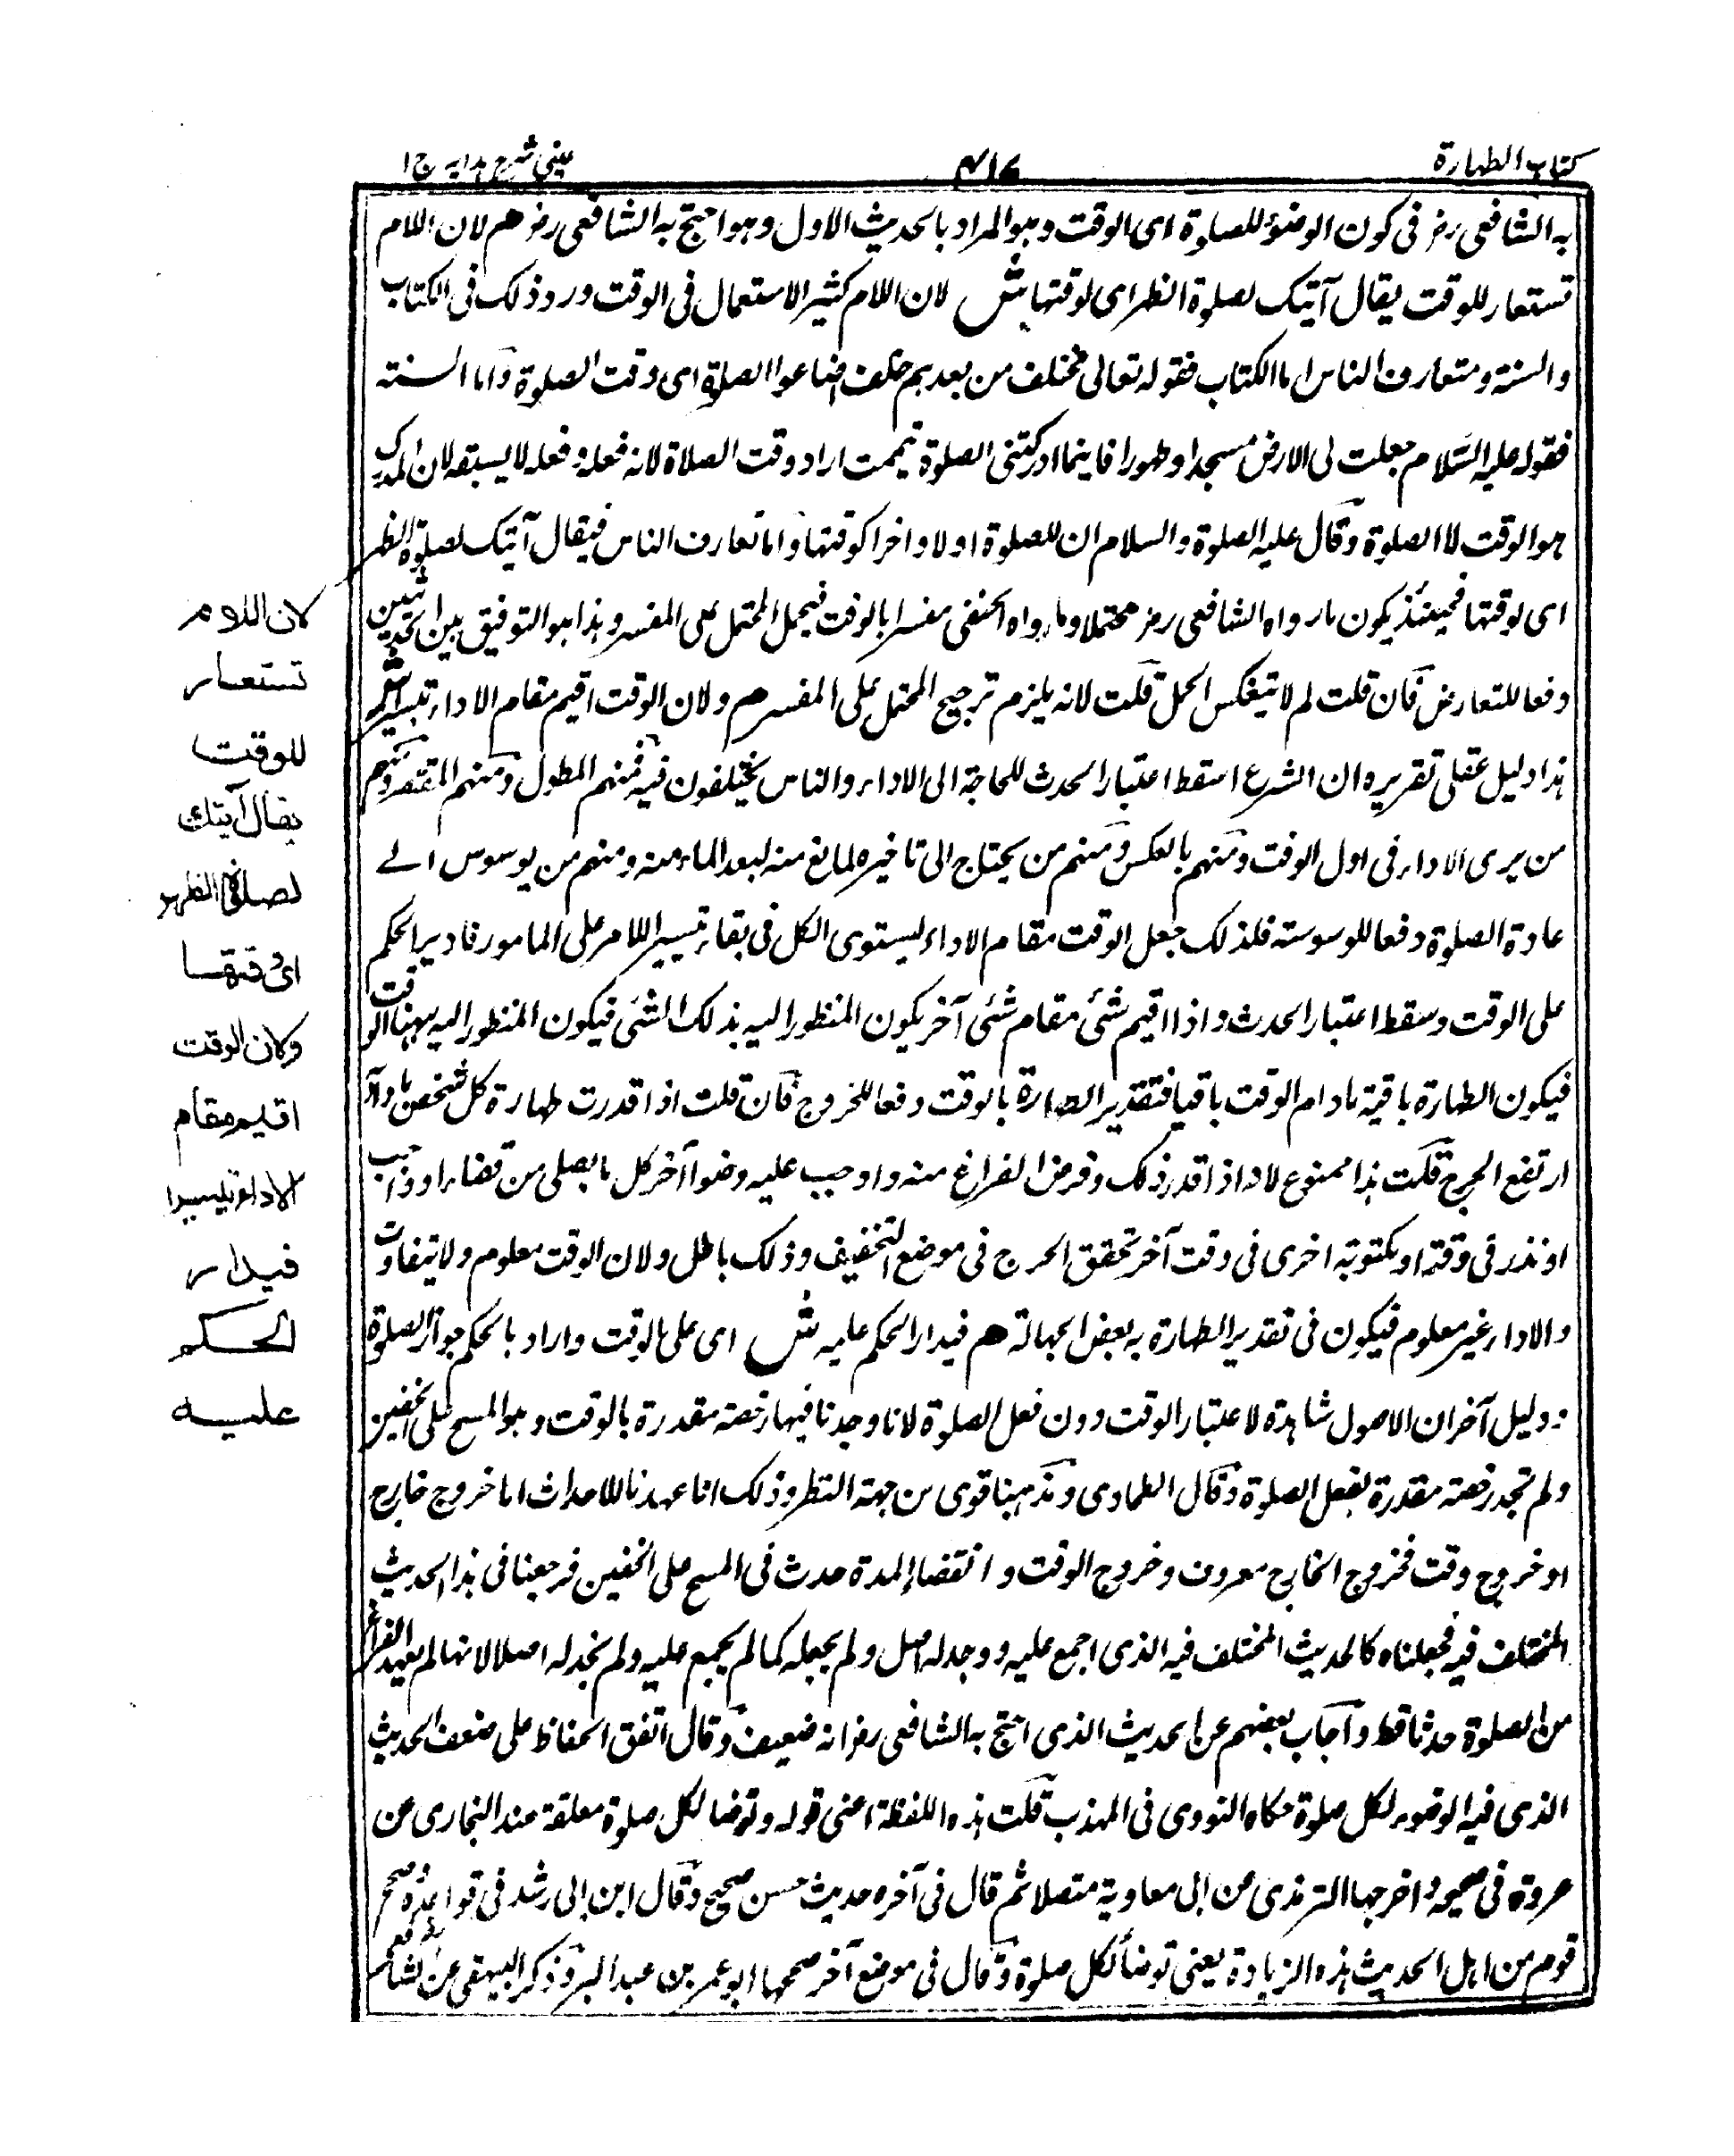 كتاب الطهارة
٤١٧
عيني شرح هدايه ج ١
به الشافعى رض فى كون الوضوء للصلوة اى الوقت وهو المراد بالحديث الاول وهو احتج به الشافعى رض هم لان اللام
تستعار للوقت يقال آتيك لصلوة الظهر اى لوقتها ش لان اللام كثير الاستعمال فى الوقت ورد ذلك فى الكتاب
والسنة ومتعارف الناس اما الكتاب فقوله تعالى فخلف من بعدهم خلف اضاعوا الصلوة اى وقت الصلوة واما السنة
فقوله عليه السلام جعلت لى الارض مسجدا وطهورا فاينما ادركتنى الصلوة تيممت اراد وقت الصلاة لانه فعله وفعله لا يسبقه لان المدرك
هو الوقت لا الصلوة وقال عليه الصلوة والسلام ان للصلوة اولا واخرا كوقتها واما تعارف الناس فيقال آتيك لصلوة الظهر
اى لوقتها فحينئذ يكون ما رواه الشافعى رض محتملا وما رواه الحنفى مفسرا بالوقت فيحمل المحتمل على المفسر وهذا هو التوفيق بين الحديثين
دفعا للتعارض فان قلت لم لا ينعكس الحمل قلت لانه يلزم ترجيح المحتمل على المفسر هم ولان الوقت اقيم مقام الاداء تيسيرا ش
هذا دليل عقلى تقريره ان الشرع اسقط اعتبار الحدث للحاجة الى الاداء والناس يختلفون فيه فمنهم المطول ومنهم المقتصر ومنهم
من يرى الاداء فى اول الوقت ومنهم بالعكس ومنهم من يحتاج الى تاخيره لمانع منه لبعد الماء منه ومنهم من يوسوس الے
عادة الصلوة دفعا للوسوسة فلذلك جعل الوقت مقام الاداء ليستوى الكل فى بقاء تيسير اللامر على المامور فادير الحكم
على الوقت وسقط اعتبار الحدث واذا اقيم شئ مقام شئ آخر يكون المنظور اليه بذلك الشئ فيكون المنظور اليه ههنا الوقت
فيكون الطهارة باقية مادام الوقت باقيا فتقدير الطهارة بالوقت دفعا للخروج فان قلت اذا قدرت طهارة كل شخص باداء
ارتفع الحرج قلت هذا ممنوع لانه اذا قدر ذلك وفرض الفراغ منه واوجب عليه وضوا آخر كل ما يصلى من قضاء او واجب
او نذر فى وقته او مكتوبة اخرى فى وقت آخر تحقق الحرج فى موضع التخفيف وذلك باطل ولان الوقت معلوم ولا يتفاوت
والاداء غير معلوم فيكون فى تقدير الطهارة به بعض الجهالة هم فيدار الحكم عليه ش اى على الوقت واراد بالحكم جواز الصلوة
ودليل آخر ان الاصول شاهدة لاعتبار الوقت دون فعل الصلوة لانا وجدنا فيها رخصة مقدرة بالوقت وهو المسح على الخفين
ولم تجد رخصة مقدرة بفعل الصلوة وقال الطحاوى ومذهبنا قوى من جهة النظر وذلك انا عهدنا الاحداث اما خروج خارج
او خروج وقت فخروج الخارج معروف وخروج الوقت وانقضاء المدة حدث فى المسح على الخفين فرجعنا فى هذا الحديث
المختلف فيه فجعلناه كالحديث المختلف فيه الذى اجمع عليه ووجد له اصل ولم يجعله كما لم يجمع عليه ولم نجد له اصلا لانها لم نعهد الفراغ
من الصلوة حدثا قط واجاب بعضهم عن الحديث الذى احتج به الشافعى رض انه ضعيف وقال اتفق الحفاظ على ضعف الحديث
الذى فيه الوضوء لكل صلوة حكاه النووى فى المهذب قلت هذه اللفظة اعنى قوله وتوضا لكل صلوة معلقة عند البخارى عن
عروة فى صحيحه واخرجها الترمذى عن ابى معاوية متصلا ثم قال فى آخره حديث حسن صحيح وقال ابن ابى رشد فى قواعده صح
قوم من اهل الحديث هذه الزيادة يعنى توضأ لكل صلوة وقال فى موضع آخر صححها ابو عمر بن عبد البر وذكر البيهقى عن الشافعى
لان اللام
تستعار
للوقت
يقال آتيك
لصلوة الظهر
اى وقتها
ولان الوقت
اقيم مقام
الاداء تيسيرا
فيدار
الحكم
عليه